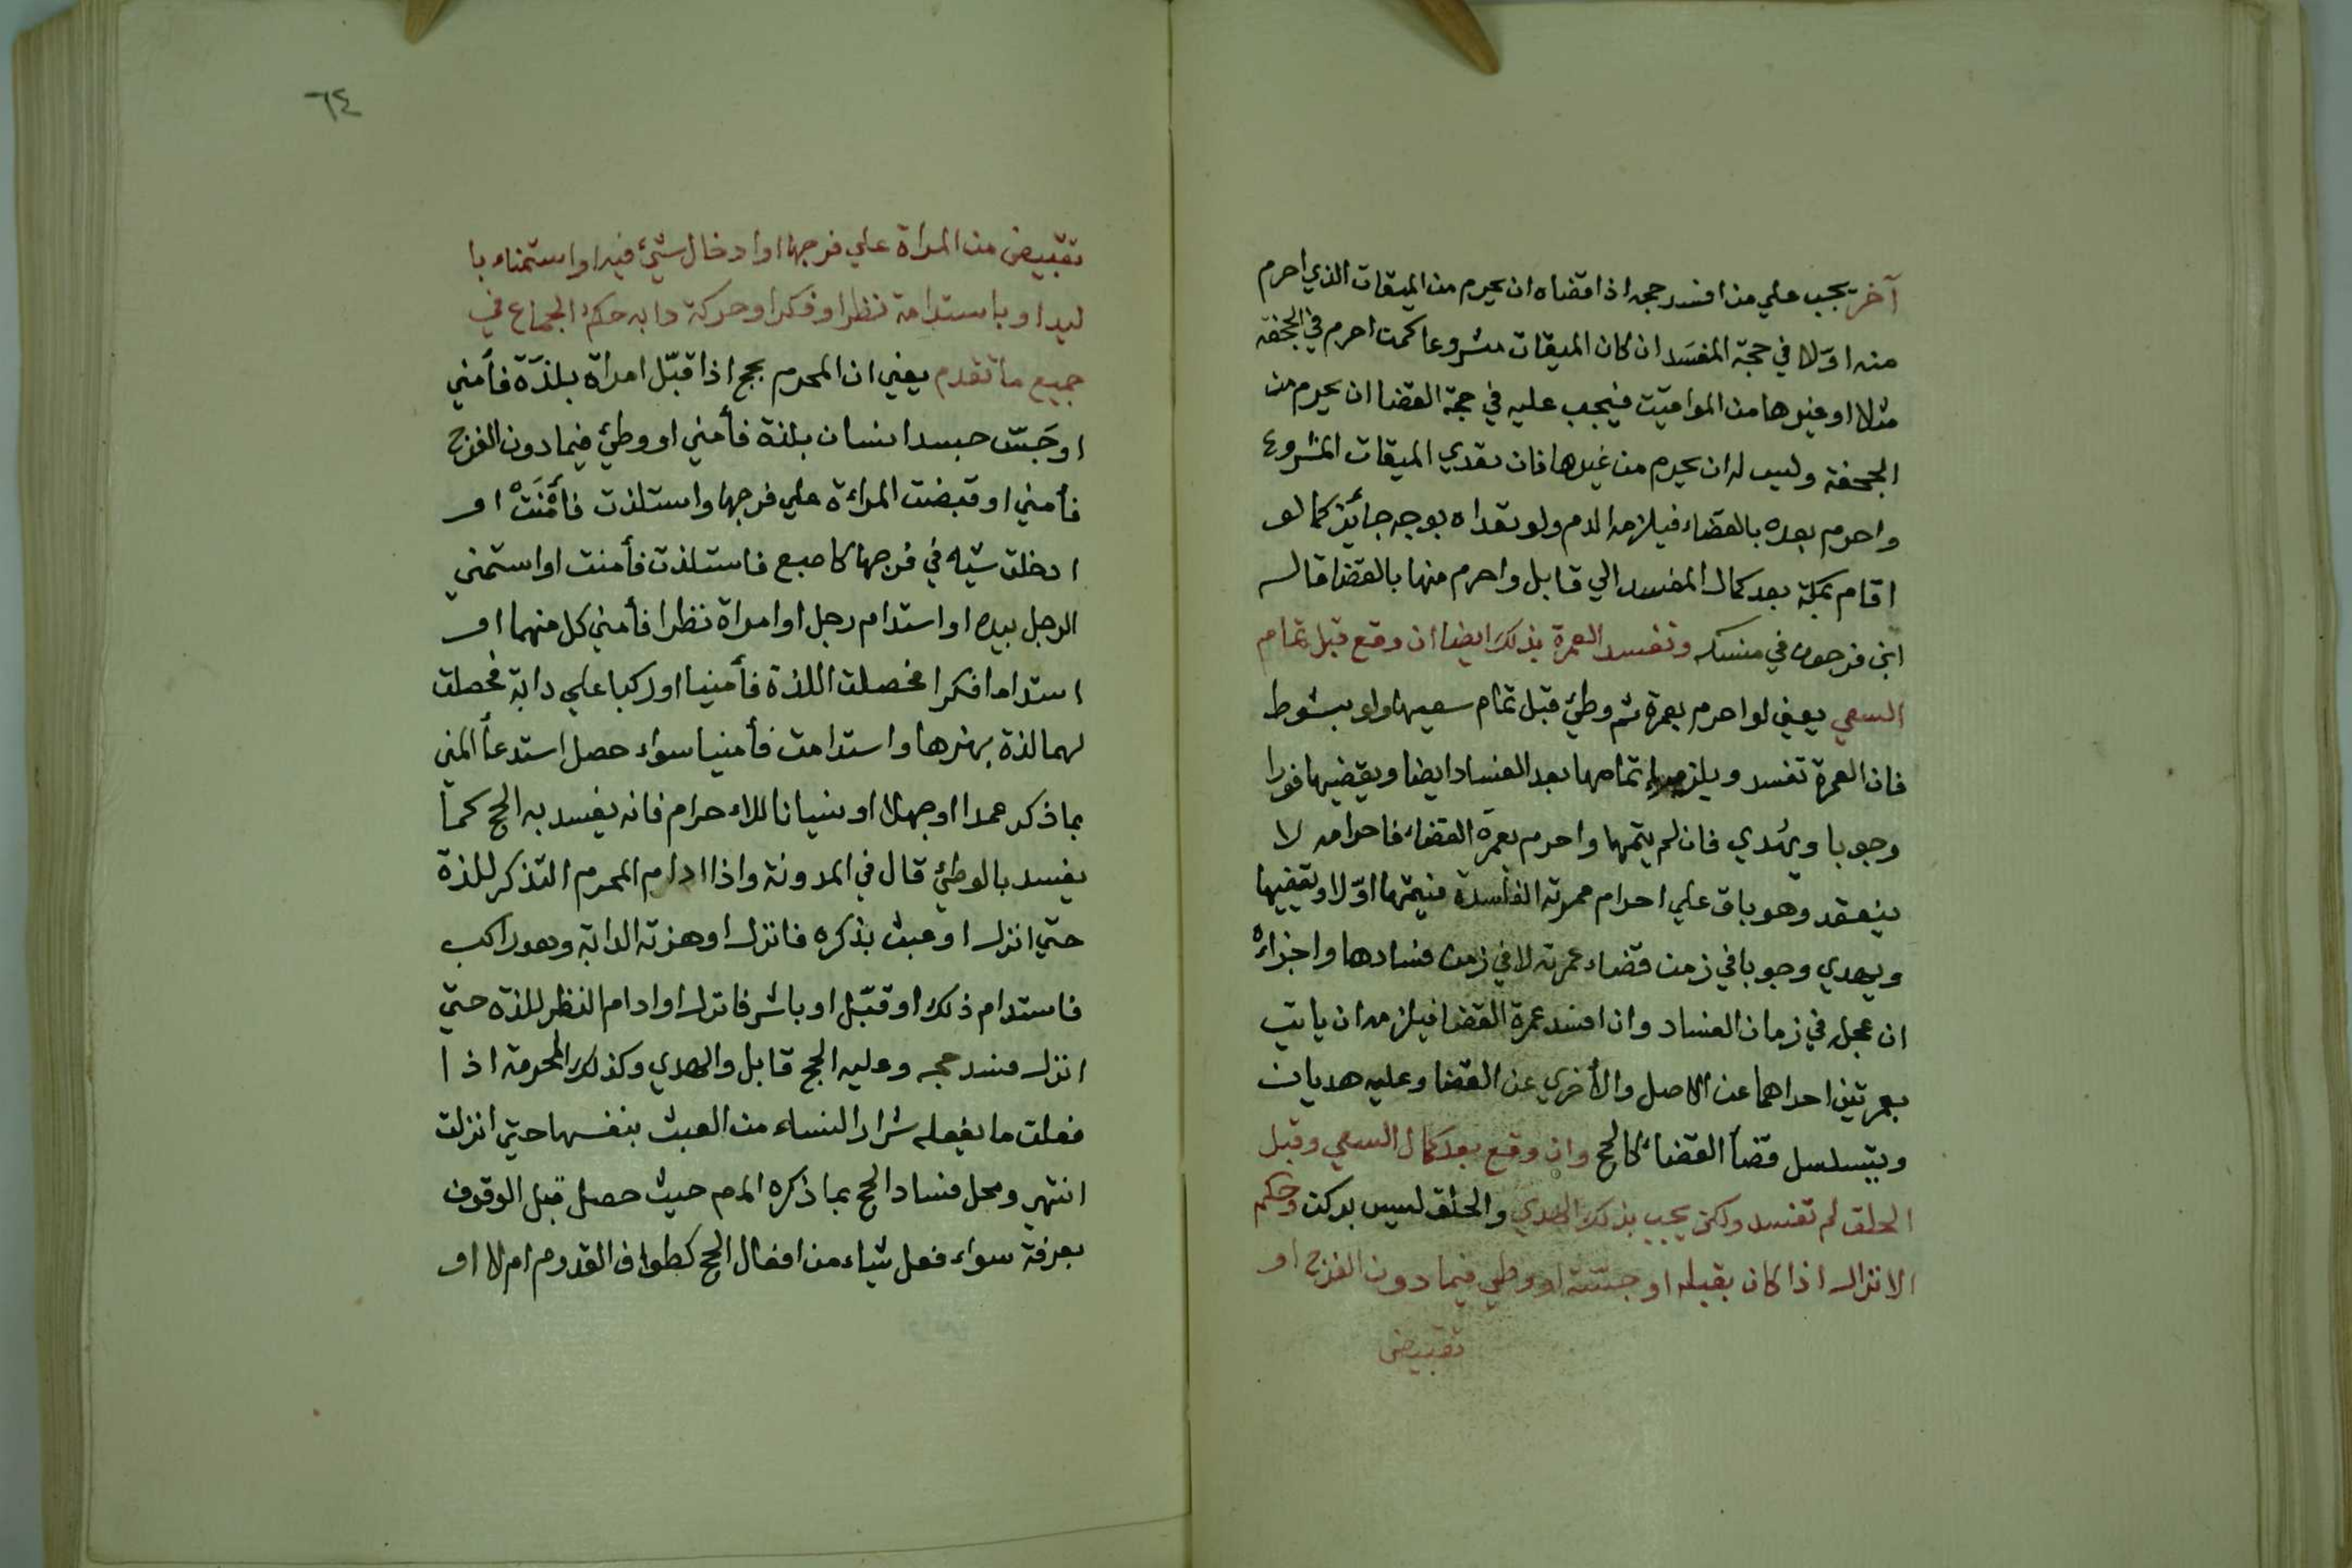 آخر يجب علي من افسد حجه اذا قضاه ان يحرم من الميقات الذي احرم
منه اوّلا في حجة المفسَد ان كان الميقات مشروعا كمن احرم في الجحفه
مثلا او غيرها من المواقيت فيجب عليه في حجة القضا ان يحرم من
الجحفة وليس له ان يحرم من غيرها فان تعدي الميقات المشروع
واحرم بعده بالقضاء فيلزمه الدم ولو تعداه بوجه جائز كما لو
اقام بمكة بعد كمال المفسد الي قابل واحرم منها بالقضا قاله
ابن فرحون في منسكه وتفسد العمرة بذلك ايضا ان وقع قبل تمام
السعي يعني لو احرم بعمرة ثم وطئ قبل تمام سعيها ولو بشوط
فان العمرة تفسد ويلزمه اتمامها بعد الفساد ايضا ويقضيها فورا
وجوبا ويهدي فان لم يتمها واحرم بعمرة القضاء فاحرامه لا
ينعقد وهو باق علي احرام عمرته الفاسدة فيتمها اوّلا ويقضيها
ويهدي وجوبا في زمن قضاء عمرته لا في زمن فسادها واجزاءه
ان عجل في زمان الفساد وان افسد عمرة القضا فيلزمه ان ياتي
بعمرتين احداهما عن الاصل والأخري عن القضا وعليه هديان
ويتسلسل قضأ القضاء كالحج وان وقع بعد كمال السعي وقبل
الحلق لم تفسد ولكن يجب بذلك الهدي والحلق ليس بركن وحكم
الانزال اذا كان بقبلة او جسّة او وطي فيما دون الفرج او
تقبيض
٦٤
تقبيض من المراة علي فرجها او ادخال شيئ فيه او استمناء با
ليد او باستدامة نظر او فكر او حركة دابه حكم الجماع في
جميع ما تقدم يعني ان المحرم بحج اذا قبّل امراة بلذّة فأمني
او جَسّ جسد انسان بلذة فأمني او وطئ فيما دون الفرج
فأمني او قبضت المراءة علي فرجها واستلذت فأمْنَتْ او
ادخلت شيه في فرجها كاصبع فاستلذت فأمنت او استمني
الرجل بيده او استدام رجل او امراة نظرا فأمني كل منهما او
استداما فكرا فحصلت اللذة فأمنيا او ركبا علي دابة فحصلت
لهما لذة بهزها واستدامت فأمنيا سواء حصل استدعأ المني
بما ذكر عمدا او جهلا او نسيانا للاء حرام فانه يفسد به الحج كما
يفسد بالوطئ قال في المدونة واذا ادام المحرم التذكر للذة
حتي انزل او عبث بذكره فانزل او هزته الدابة وهو راكب
فاستدام ذلك او قبّل او باشر فانزل او ادام النظر للذه حتي
انزل فسد حجه وعليه الحج قابل والهدي وكذلك المحرمة اذا
فعلت ما يفعله شرار النساء من العبث بنفسها حتي انزلت
انتهي ومحل فساد الحج بما ذكره المص حيث حصل قبل الوقوف
بعرفة سواء فعل شياء من افعال الحج كطواف القدوم ام لا او